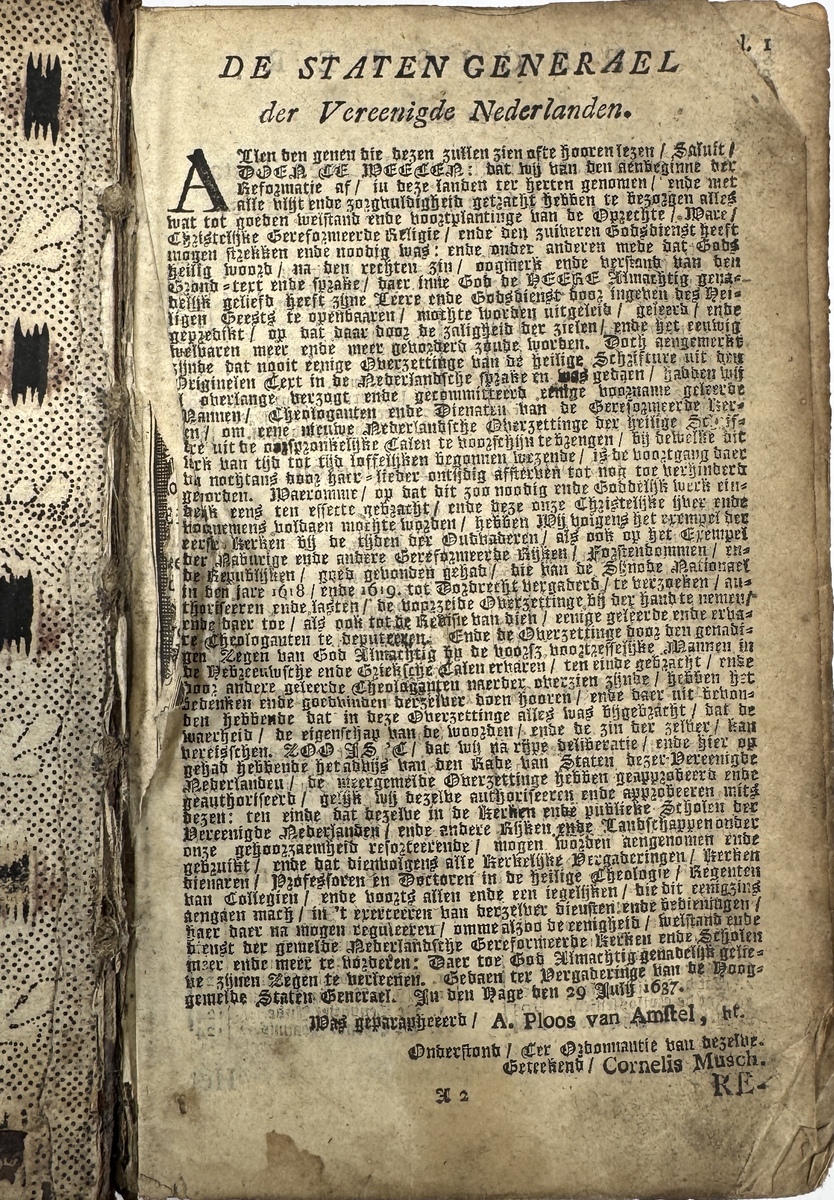 l. 1
DE STATEN GENERAEL
der Vereenigde Nederlanden.
ALlen den genen die dezen zullen zien ofte hooren lezen / Saluit /
DOEN TE WEETEN: dat wij van den aenbeginne der
Reformatie af / in deze landen ter herten genomen / ende met
alle vlijt ende zorgvuldigheid getracht hebben te bezorgen alles
wat tot goeden welstand ende voortplantinge van de Oprechte / Ware /
Christelijke Gereformeerde Religie / ende den zuiveren Godsdienst heeft
mogen strekken ende noodig was: ende onder anderen mede dat Gods
heilig woord / na den rechten zin / oogmerk ende verstand van den
Grond-text ende sprake / daer inne God de HEERE Almachtig gena-
delijk geliefd heeft zijne Leere ende Godsdienst door ingeven des Hei-
ligen Geests te openbaaren / mochte worden uitgeleid / geleerd / ende
gepredikt / op dat daar door de zaligheid der zielen / ende het eeuwig
welvaren meer ende meer gevorderd zoude worden. Doch aengemerkt
zijnde dat nooit eenige Overzettinge van de heilige Schrifture uit den
Originelen Text in de Nederlandsche sprake en was gedaen / hadden wij
overlange verzogt ende gecommitteerd eenige voorname geleerde
Mannen / Theologanten ende Dienaten van de Gereformeerde Ker-
en / om eene nieuwe Nederlandsche Overzettinge der heilige Schrif-
ture uit de oorspronkelijke Talen te voorschijn te brengen / bij dewelke dit
werk van tijd tot tijd loffelijken begonnen wezende / is de voortgang daer
van nochtans door haer-lieder ontijdig afsterven tot nog toe verhinderd
geworden. Waeromme / op dat dit zoo noodig ende Goddelijk werk ein-
delijk eens ten effecte gebracht / ende deze onze Christelijke ijver ende
voornemens voldaen mochte worden / hebben Wij volgens het exempel der
eerste Kerken bij de tijden der Oudvaderen / als ook op het Exempel
der Naburige ende andere Gereformeerde Rijken / Forstendommen / en-
de Republijken / goed gevonden gehad / die van de Sijnode Nationael
in den jare 1618 / ende 1619. tot Dordrecht vergaderd / te verzoeken / au-
thoriseeren ende lasten / de voorzeide Overzettinge bij der hand te nemen /
ende daer toe / als ook tot de Revisie van dien / eenige geleerde ende erva-
re Theologanten te deputeeren. Ende de Overzettinge door den genadi-
gen Zegen van God Almachtig bij de voorsz. voortreffelijke Mannen in
de Hebreeuwsche ende Grieksche Talen ervaren / ten einde gebracht / ende
door andere geleerde Theologanten naerder overzien zijnde / hebben het
bedenken ende goedvinden derzelver doen hooren / ende daer uit bevon-
den hebbende dat in deze Overzettinge alles was bijgebracht / dat de
waerheid / de eigenschap van de woorden / ende de zin der zelver / kan
vereisschen. ZOO IS 'T / dat wij na rijpe deliberatie / ende hier op
gehad hebbende het advijs van den Rade van Staten dezer Vereenigde
Nederlanden / de meergemelde Overzettinge hebben geapprobeerd ende
geauthoriseerd / gelijk wij dezelve authoriseeren ende approbeeren mits
dezen: ten einde dat dezelve in de Kerken ende publieke Scholen der
Vereenigde Nederlanden / ende andere Rijken ende Landschappen onder
onze gehoorzaemheid resorteerende / mogen worden aengenomen ende
gebruikt / ende dat dienvolgens alle Kerkelijke Vergaderingen / Kerken
dienaren / Professoren en Doctoren in de heilige Theologie / Regenten
van Collegien / ende voorts allen ende een iegelijken / die dit eenigzins
aengaen mach / in 't exerceeren van derzelver diensten ende bedieningen /
haer daer na mogen reguleeren / omme alzoo de eenigheid / welstand ende
dienst der gemelde Nederlandsche Gereformeerde Kerken ende Scholen
meer ende meer te vorderen: Daer toe God Almachtig genadelijk gelie-
ve zijnen Zegen te verleenen. Gedaen ter Vergaderinge van de Hoog-
gemelde Staten Generael. In den Hage den 29 Julij 1637.
Was geparapheerd / A. Ploos van Amstel, vt.
Onderstond / Ter Ordonnantie van dezelve.
Geteekend / Cornelis Musch.
A 2
RE-